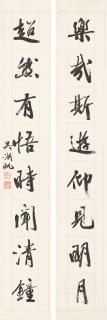 樂哉斯遊仰見明月
超然有悟時聞清鐘
吳湖帆